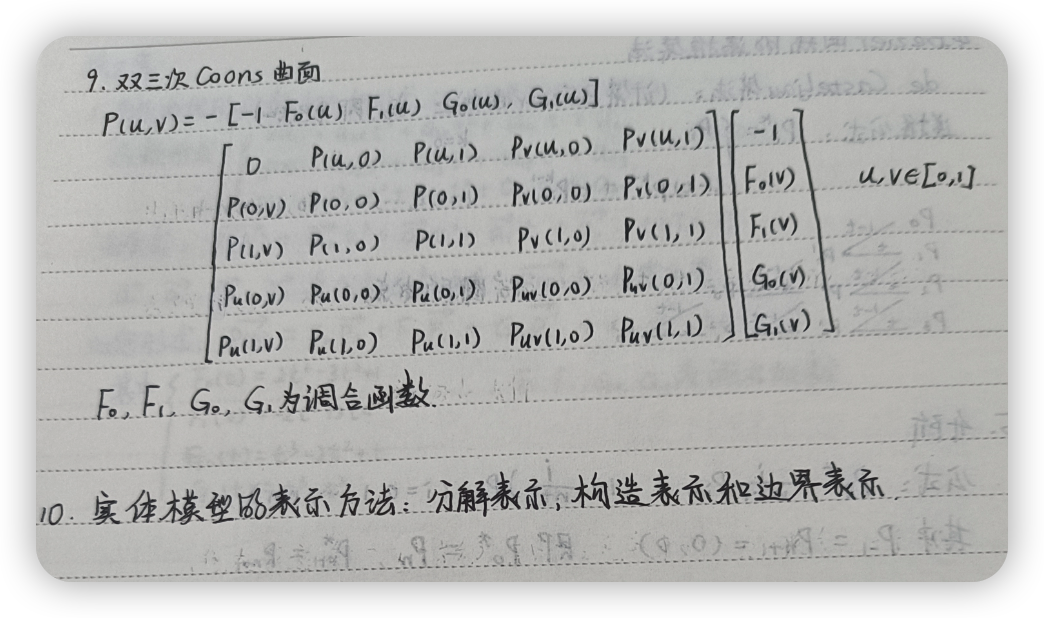 9. 双三次 Coons 曲面
P(u,v) = - [-1 F₀(u) F₁(u) G₀(u), G₁(u)]
[0 P(u,0) P(u,1) Pv(u,0) Pv(u,1)] [-1]
P(0,v) P(0,0) P(0,1) Pv(0,0) Pv(0,1) F₀(v) u,v∈[0,1]
P(1,v) P(1,0) P(1,1) Pv(1,0) Pv(1,1) F₁(v)
Pu(0,v) Pu(0,0) Pu(0,1) Puv(0,0) Puv(0,1) G₀(v)
Pu(1,v) Pu(1,0) Pu(1,1) Puv(1,0) Puv(1,1) G₁(v)
F₀, F₁, G₀, G₁为调合函数.
10. 实体模型的表示方法: 分解表示, 构造表示和边界表示.